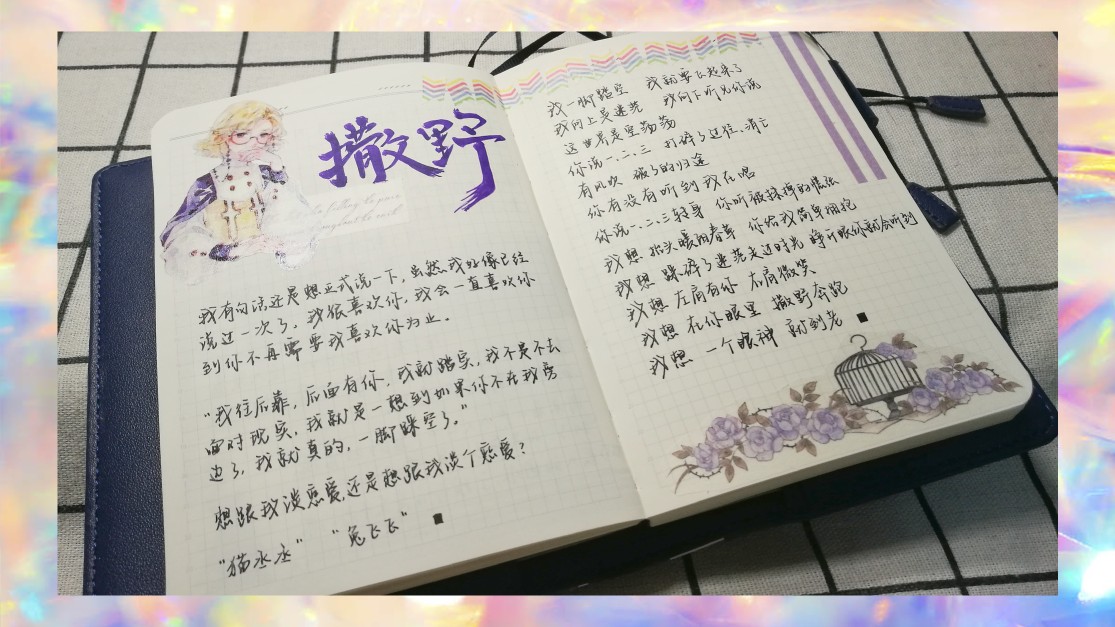 撒野
我有句话还是想正式说一下,虽然我好像已经
说过一次了,我很喜欢你,我会一直喜欢你
到你不再需要我喜欢你为止。
“我往后靠,后面有你,我就踏实,我不是不去
面对现实,我就是一想到如果你不在我旁
边了,我就真的,一脚踩空了。”
想跟我谈恋爱,还是想跟我谈个恋爱?
“猫丞丞” “兔飞飞”
我一脚踏空 我就要飞起来了
我向上是迷茫 我向下听见你说
这世界是空荡荡
你说一.二.三 打碎了过往、消亡
有风吹 破了的归途
你有没有听到我在唱
你说一.二.三转身 你听被抹掉的慌张
我想 抬头暖阳春草 你给我简单拥抱
我想 踩碎了迷茫走过时光 睁开眼你就会听到
我想 左肩有你 右肩微笑
我想 在你眼里 撒野奔跑
我想 一个眼神 就到老